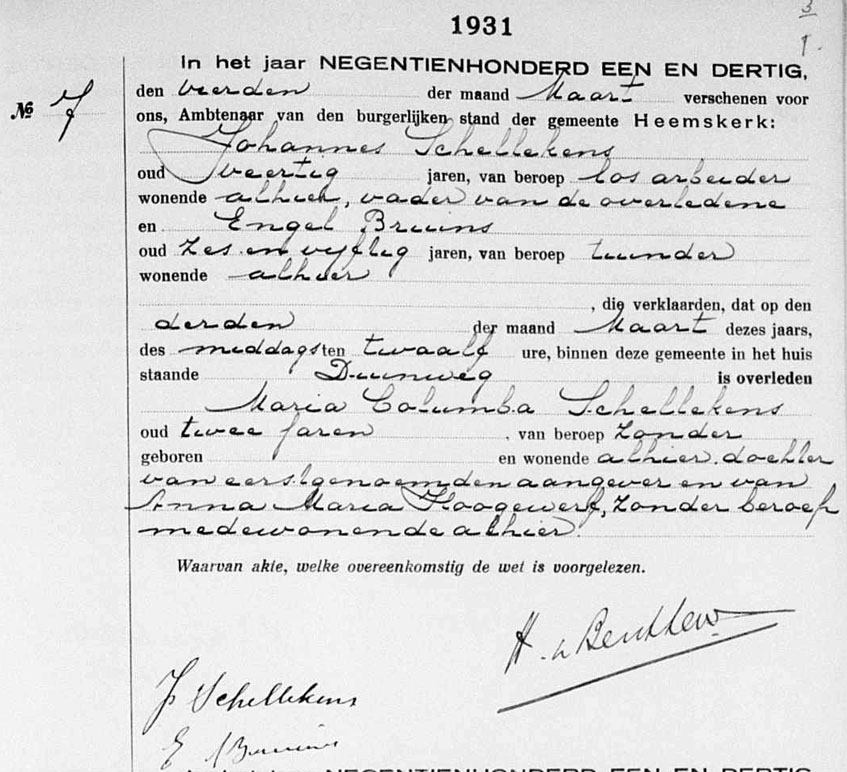 3
1.
1931
In het jaar NEGENTIENHONDERD EEN EN DERTIG,
den vierden der maand Maart verschenen voor
№ 7
ons, Ambtenaar van den burgerlijken stand der gemeente Heemskerk:
Johannes Schellekens
oud veertig jaren, van beroep los arbeider
wonende alhier, vader van de overledene
en Engel Bruins
oud zes en vijftig jaren, van beroep tuinder
wonende alhier
, die verklaarden, dat op den
derden der maand Maart dezes jaars,
des middags ten twaalf ure, binnen deze gemeente in het huis
staande Duinweg is overleden
Maria Columba Schellekens
oud twee jaren , van beroep zonder
geboren en wonende alhier, dochter
van eerstgenoemden aangever en van
Anna Maria Hoogewerf, zonder beroep
medewonende alhier.
Waarvan akte, welke overeenkomstig de wet is voorgelezen.
H. v
J Schellekens
E Bruins
NEGENTIENHONDERD EEN EN DERTIG